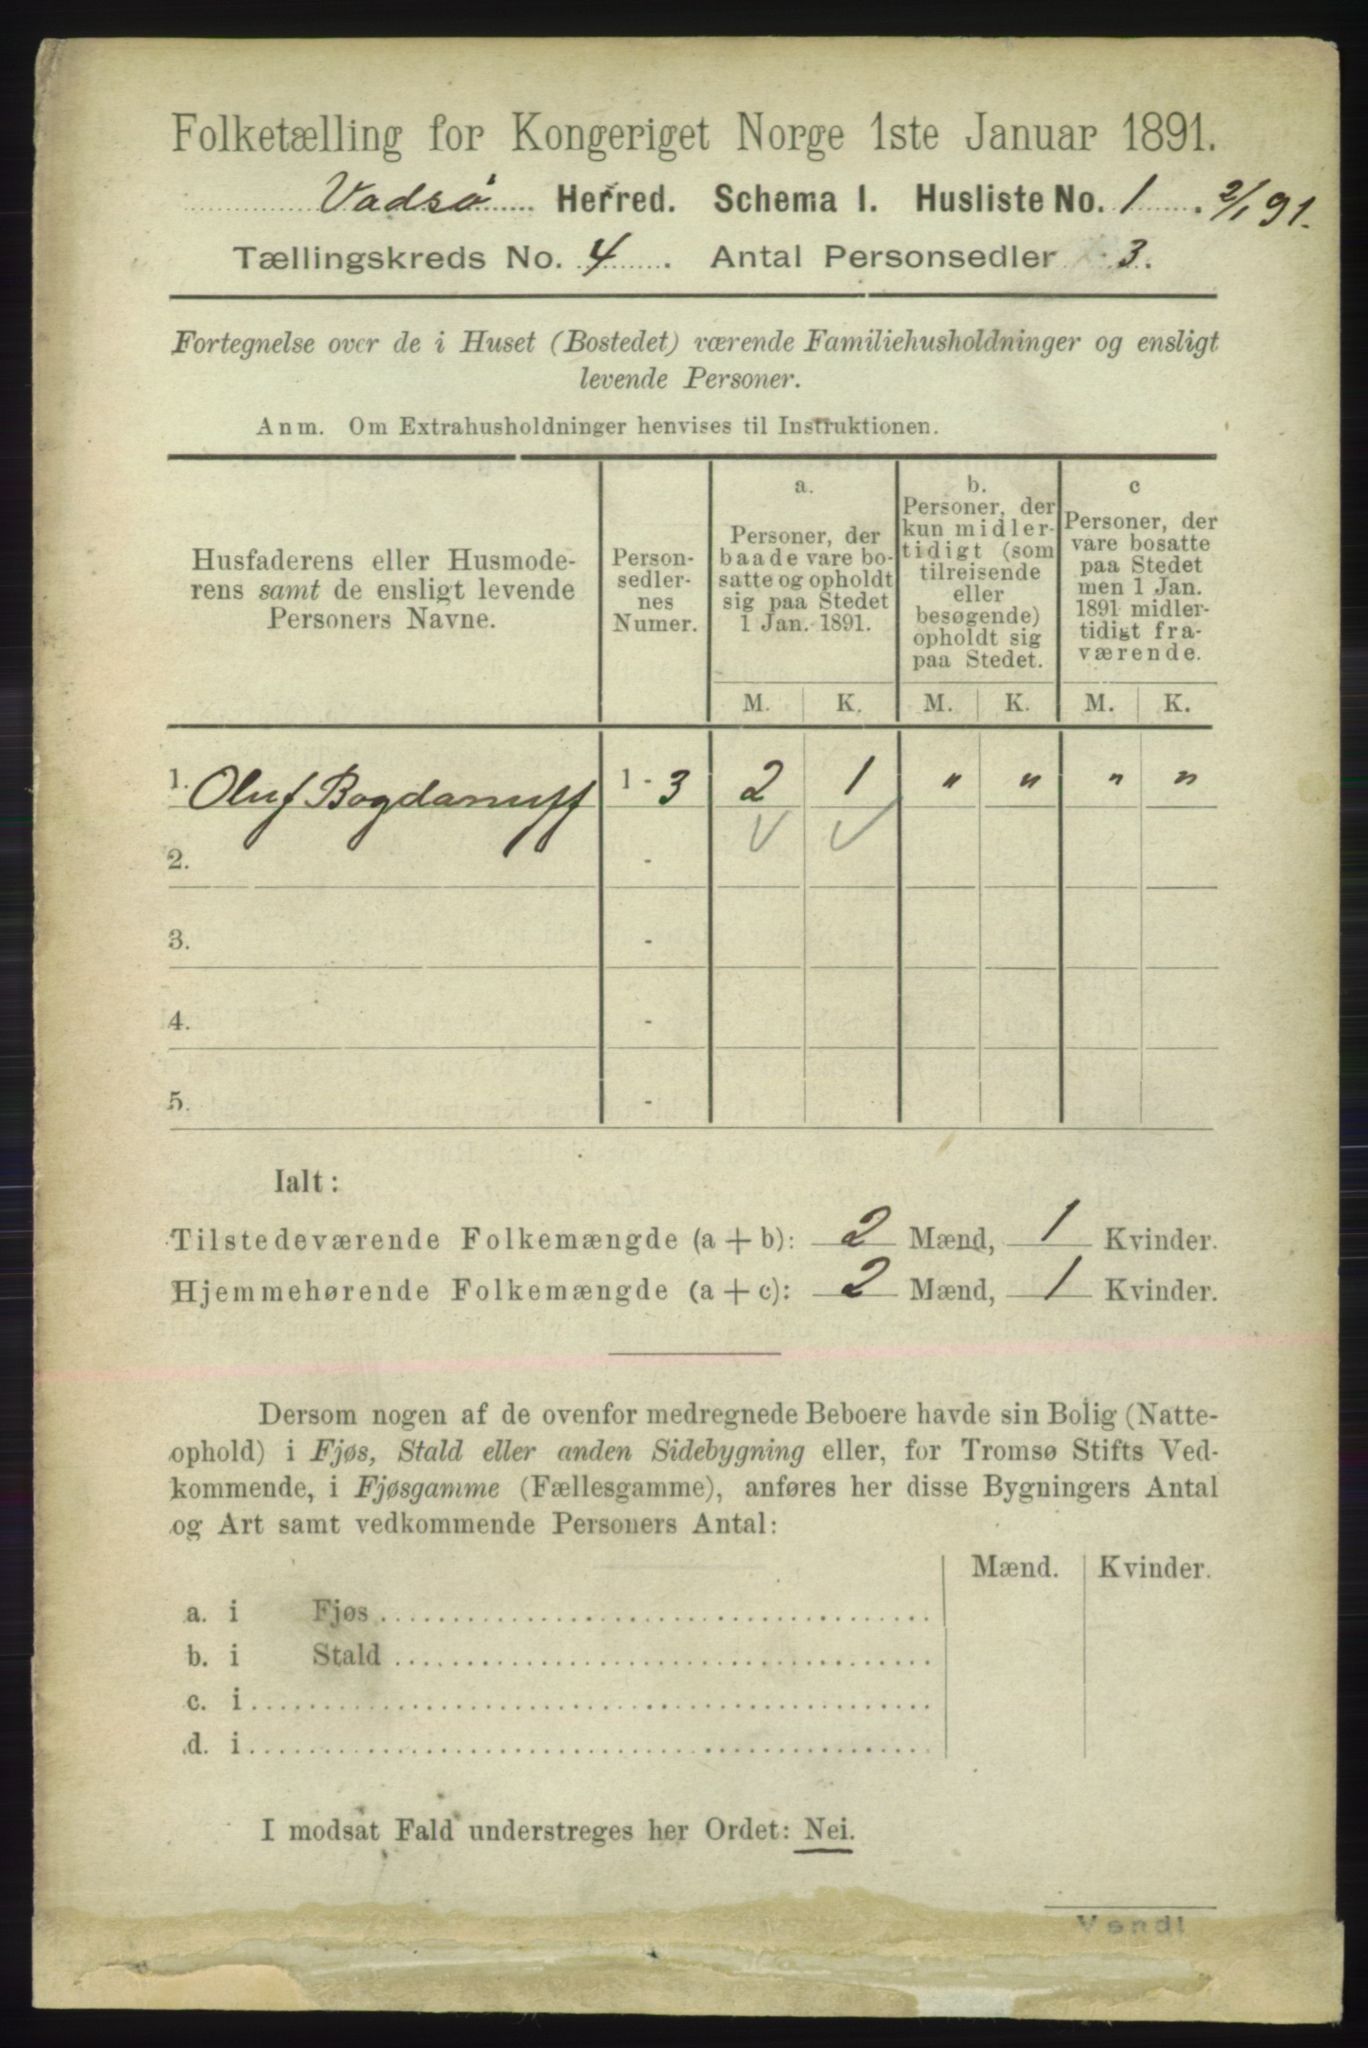 Folketælling for Kongeriget Norge 1ste Januar 1891.
Vadsø Herred. Schema I. Husliste No. 1. 2/1 91.
Tællingskreds No. 4. Antal Personsedler 3.
Fortegnelse over de i Huset (Bostedet) værende Familiehusholdninger og ensligt
levende Personer.
Anm. Om Extrahusholdninger henvises til Instruktionen.
Husfaderens eller Husmode-
rens samt de ensligt levende
Personers Navne.
Person-
sedler-
nes
Numer.
a.
Personer, der
baade vare bo-
satte og opholdt
sig paa Stedet
1 Jan. 1891.
b.
Personer, der
kun midler-
tidigt (som
tilreisende
eller
besøgende)
opholdt sig
paa Stedet.
c
Personer, der
vare bosatte
paa Stedet
men 1 Jan.
1891 midler-
tidigt fra-
værende.
M. K. M. K. M. K.
1. Oluf Bogdanuff 1 - 3 2 1 " " " "
2. -
3. -
4. -
5. -
Ialt:
Tilstedeværende Folkemængde (a + b): 2 Mænd, 1 Kvinder.
Hjemmehørende Folkemængde (a + c): 2 Mænd, 1 Kvinder.
Dersom nogen af de ovenfor medregnede Beboere havde sin Bolig (Natte-
ophold) i Fjøs, Stald eller anden Sidebygning eller, for Tromsø Stifts Ved-
kommende, i Fjøsgamme (Fællesgamme), anføres her disse Bygningers Antal
og Art samt vedkommende Personers Antal:
Mænd. Kvinder.
a. i Fjøs
b. i Stald
c. i
d. i
I modsat Fald understreges her Ordet: Nei.
Vend!